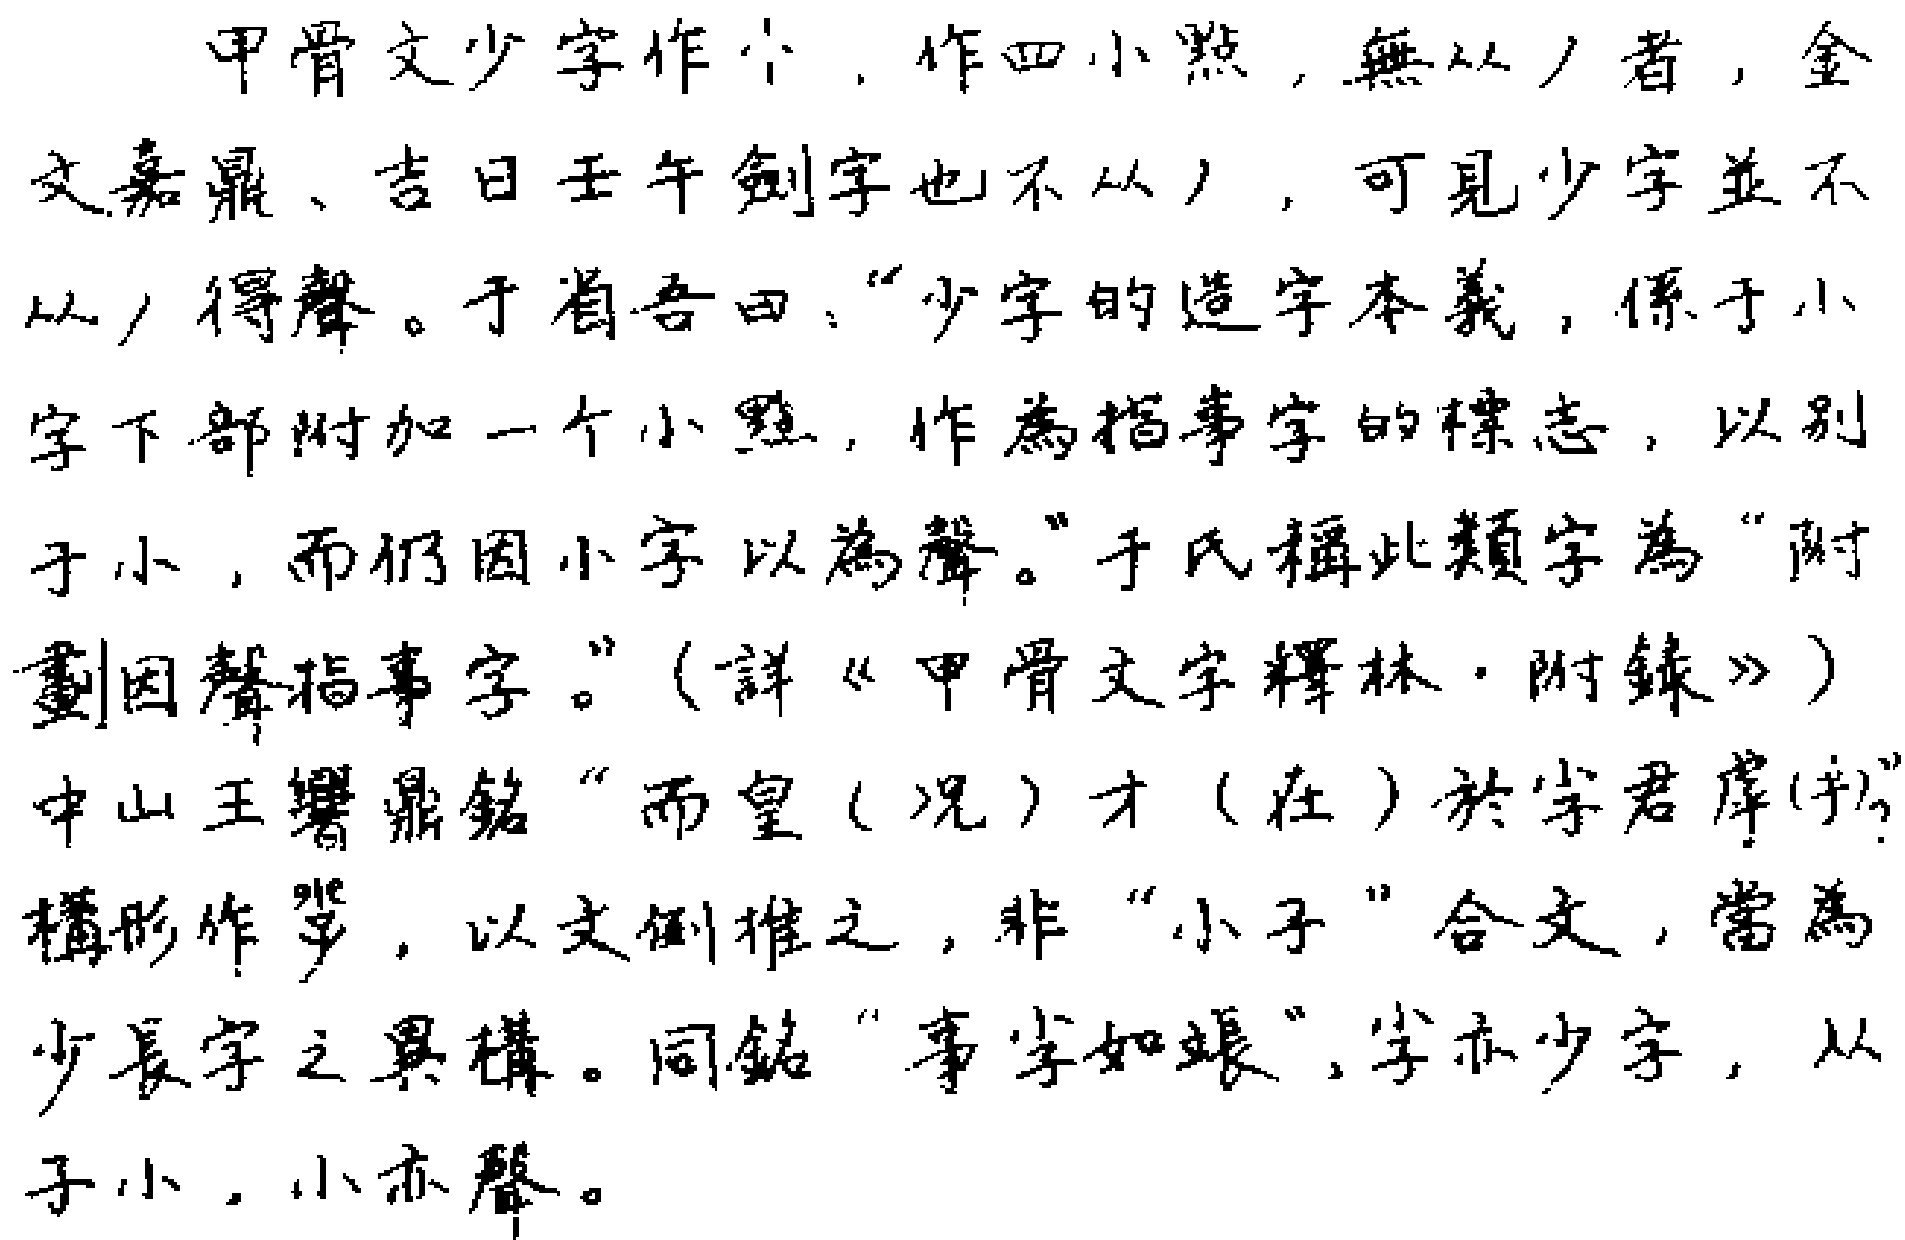 甲骨文少字作⺌，作四小點，無从丿者，金
文嘉鼎、吉日壬午劍字也不从丿，可見少字並不
从丿得聲。于省吾曰："少字的造字本義，係于小
字下部附加一个小點，作為指事字的標志，以别
于小，而仍因小字以為聲。"于氏稱此類字為"附
劃因聲指事字。"（詳《甲骨文字釋林·附錄》）
中山王嚳鼎銘"而皇（况）才（在）於㝐君虖(乎)"，
構形作，以文例推之，非"小子"合文，當為
少長字之異構。同銘"事如䛫"，亦少字，从
子小，小亦聲。